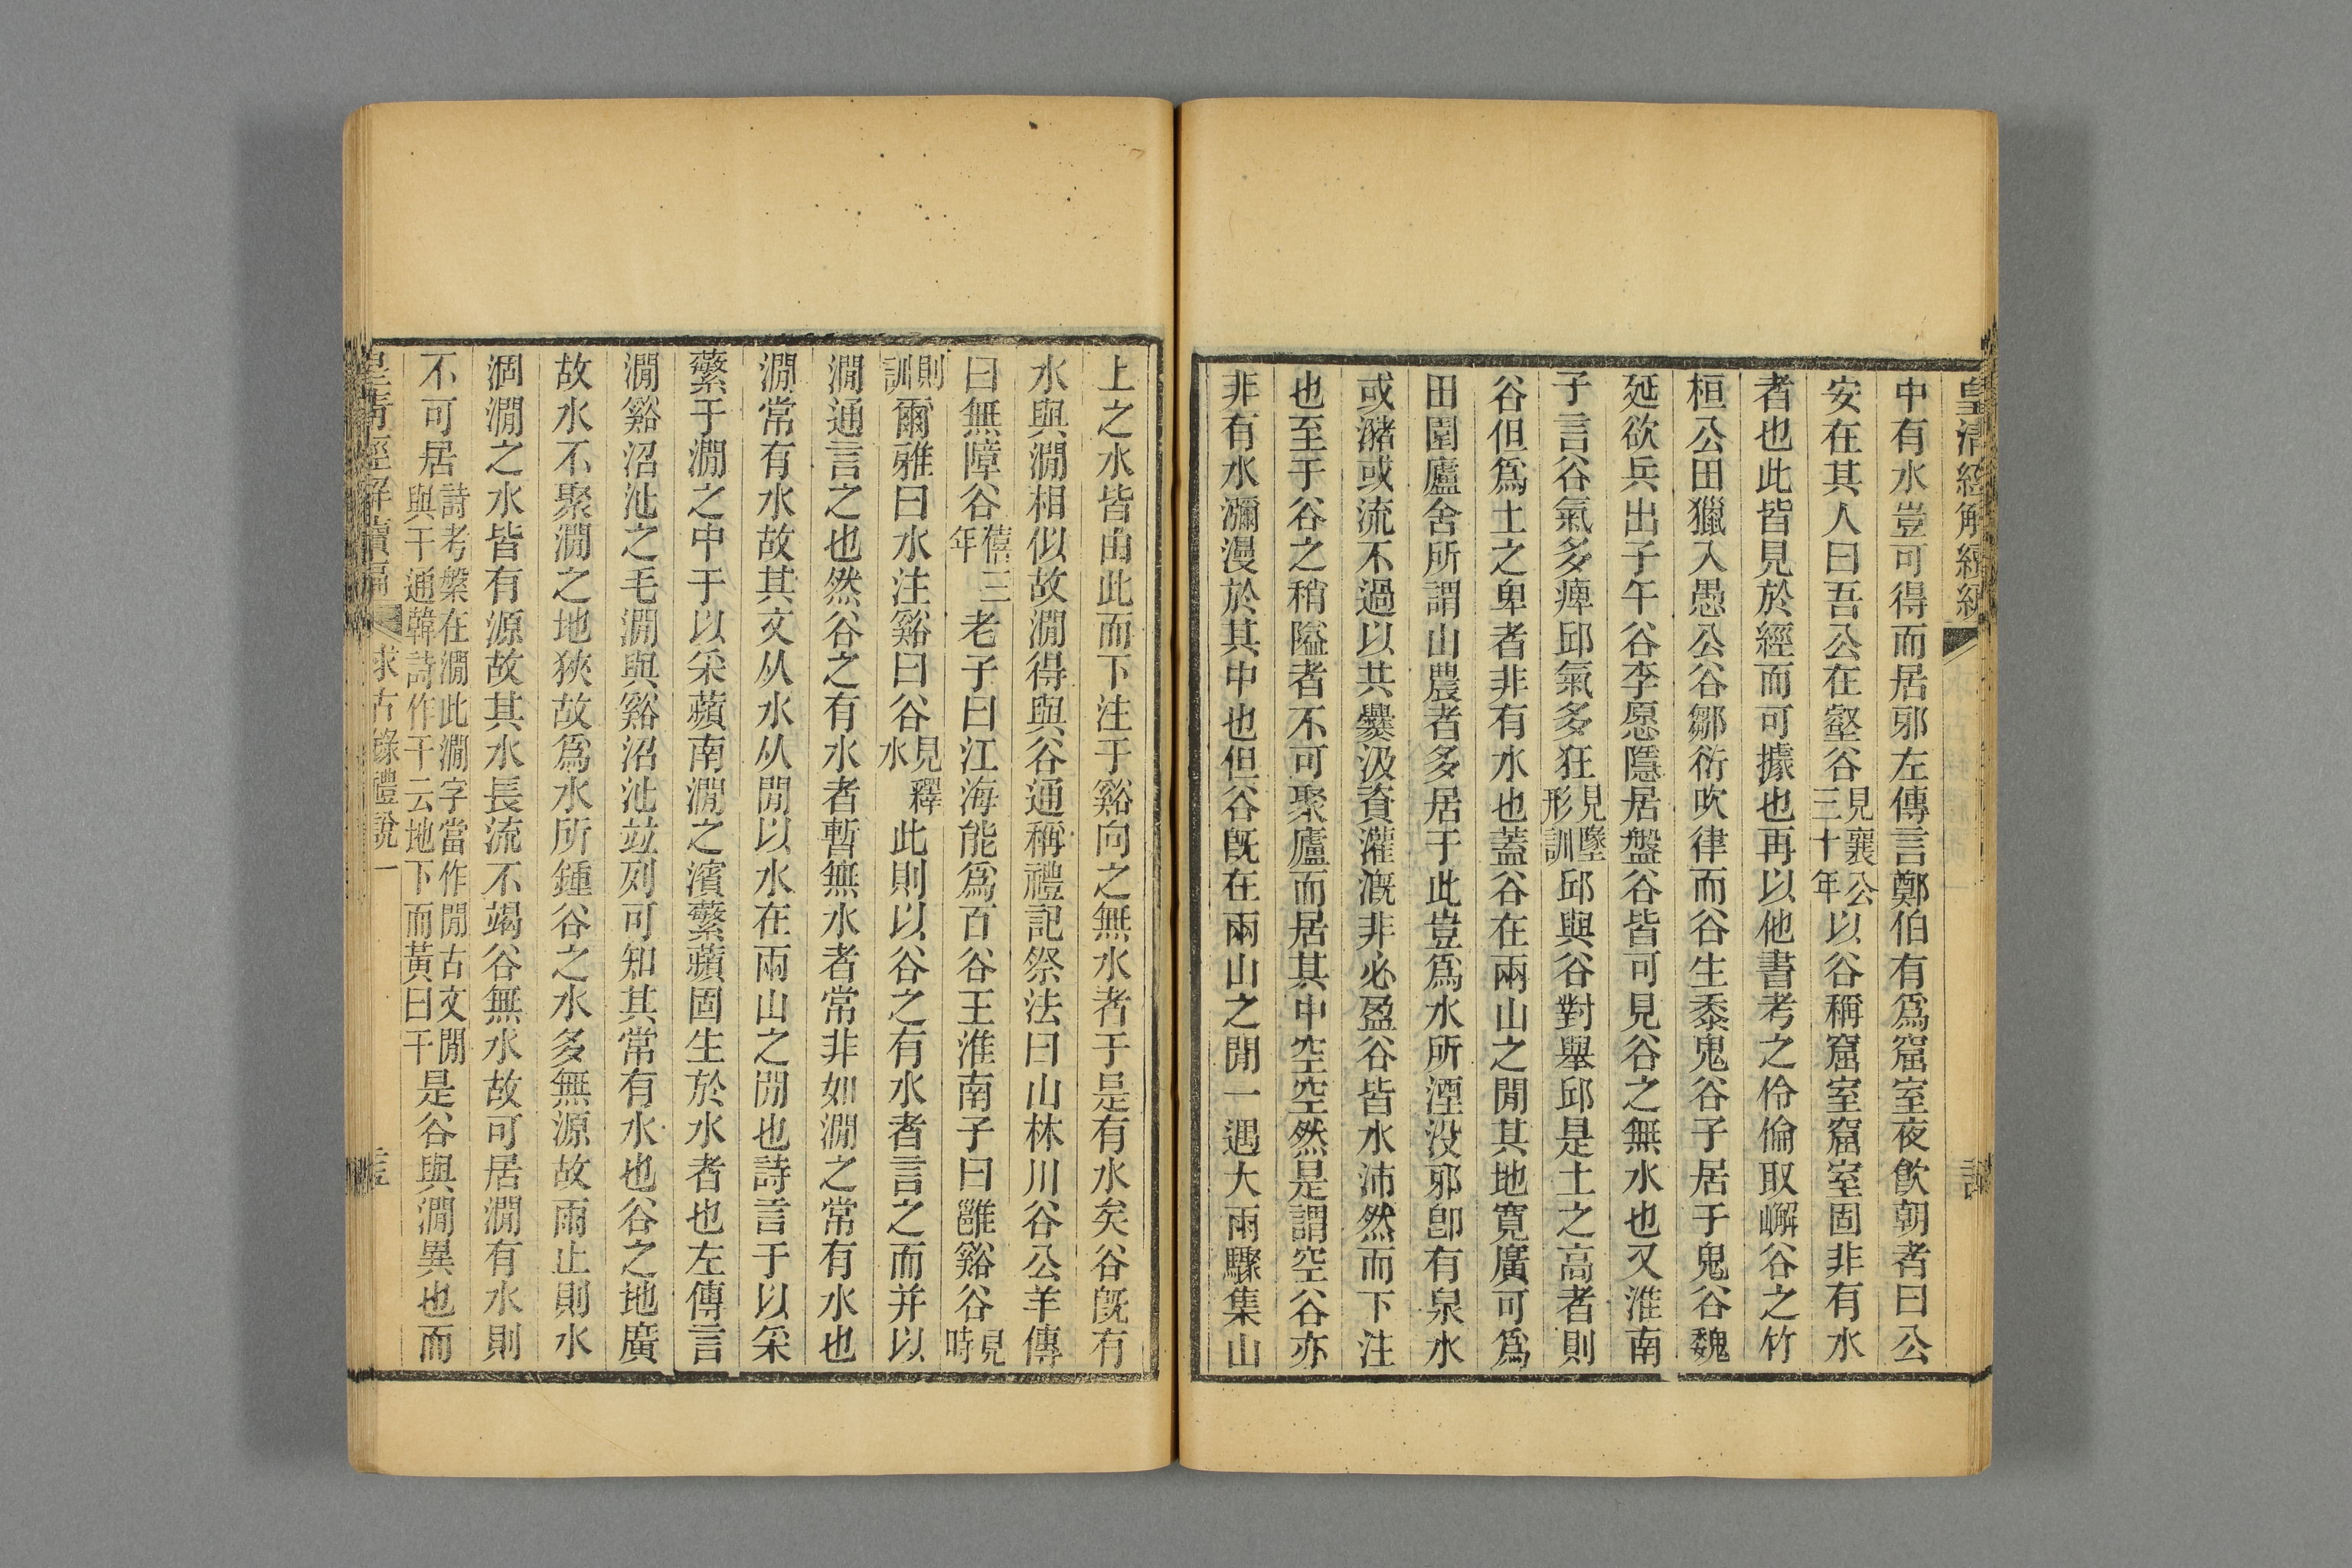 皇清經解續編
中有水豈可得而居邪左傳言鄭伯有爲窟室夜飮朝者曰公
安在其人曰吾公在壑谷見襄公三十年以谷稱窟室窟室固非有水
者也此皆見於經而可據也再以他書考之伶倫取嶰谷之竹
桓公田獵入愚公谷鄒衍吹律而谷生黍鬼谷子居于鬼谷魏
延欲兵出子午谷李愿隱居盤谷皆可見谷之無水也又淮南
子言谷氣多痺邱氣多狂見墬形訓邱與谷對舉邱是土之高者則
谷但爲土之卑者非有水也蓋谷在兩山之閒其地寬廣可爲
田園廬舍所謂山農者多居于此豈爲水所湮没邪卽有泉水
或瀦或流不過以共爨汲資灌漑非必盈谷皆水沛然而下注
也至于谷之稍隘者不可聚廬而居其中空空然是謂空谷亦
非有水瀰漫於其中也但谷旣在兩山之閒一遇大雨驟集山
上之水皆由此而下注于谿向之無水者于是有水矣谷旣有
水與澗相似故澗得與谷通稱禮記祭法曰山林川谷公羊傳
曰無障谷僖三年老子曰江海能爲百谷王淮南子曰雝谿谷見時
則訓爾雅曰水注谿曰谷見釋水此則以谷之有水者言之而并以
澗通言之也然谷之有水者暫無水者常非如澗之常有水也
澗常有水故其文从水从閒以水在兩山之閒也詩言于以采
蘩于澗之中于以采蘋南澗之濱蘩蘋固生於水者也左傳言
澗谿沼沚之毛澗與谿沼沚竝列可知其常有水也谷之地廣
故水不聚澗之地狹故爲水所鍾谷之水多無源故雨止則水
涸澗之水皆有源故其水長流不竭谷無水故可居澗有水則
不可居詩考槃在澗此澗字當作閒古文閒與干通韓詩作干云地下而黃曰干是谷與澗異也而
皇清經解續編 求古錄禮說一